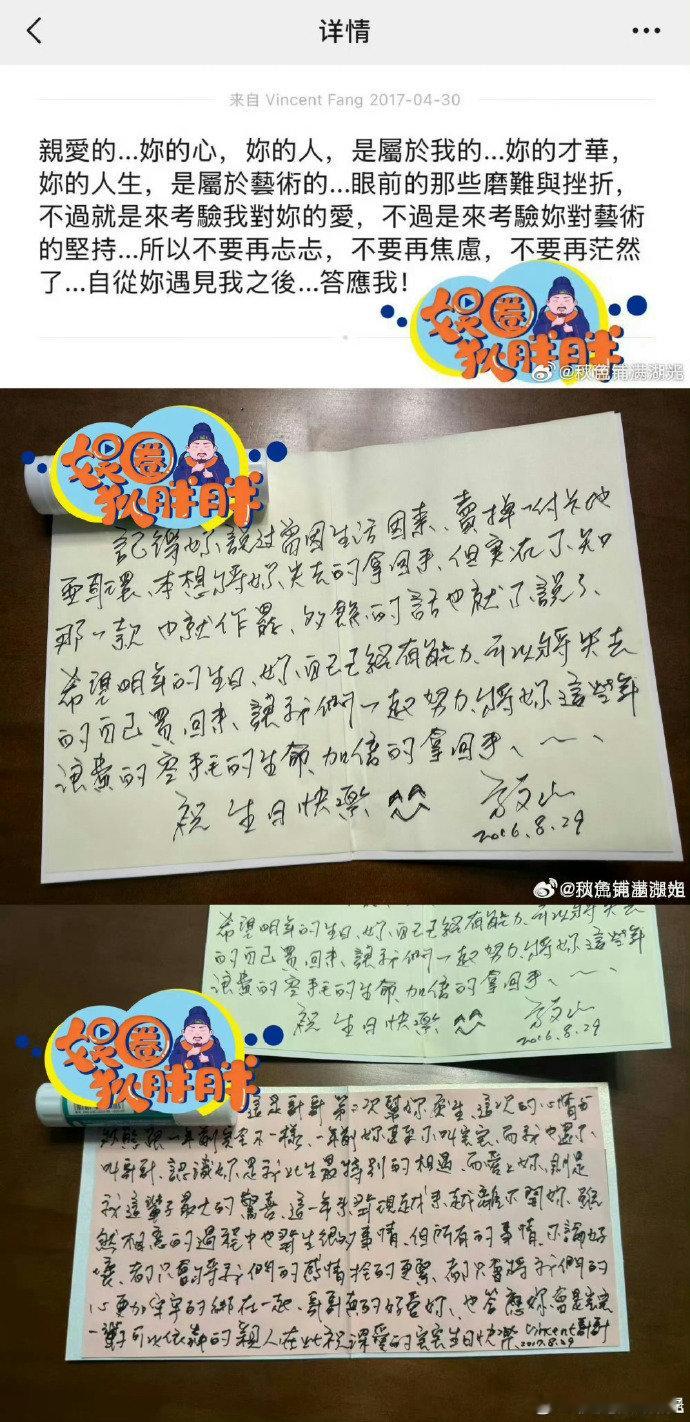 详情
来自 Vincent Fang 2017-04-30
親愛的...妳的心，妳的人，是屬於我的...妳的才華，
妳的人生，是屬於藝術的...眼前的那些磨難與挫折，
不過就是來考驗我對妳的愛，不過是來考驗妳對藝術
的堅持...所以不要再忐忑，不要再焦慮，不要再茫然
了...自從妳遇見我之後...答應我！
娱圈
狄胖胖
@秋魚铺满湖光
娱圈
狄胖胖
記得妳說过曾因生活因素、賣掉一付卡地
亞耳環、本想將妳失去的拿回來、但实在不知
那一款也就作罷、的話也就不說了、
希望明年的生日、妳自己已經有能力、可以將失去
的自己買回來、讓我們一起努力、將妳這些年
浪費的的生命、加倍的拿回來、～、
祝生日快樂 ^^ 方文山
2016.8.29
希望明年的生日、妳自己已經有能力、可以將失去
的自己買回來、讓我們一起努力、將妳這些年
浪費的的生命、加倍的拿回來、～、
祝生日快樂 ^^ 方文山
2016.8.29
娱圈
狄胖胖
這是哥哥第二次幫妳慶生、這次的心情与
一年前完全不一樣、一年前妳甚至不叫宝宝、而我也還不
叫哥哥、認識妳是我此生最特別的相遇、而愛上妳、則是
我這輩子最大的驚喜、這一年來發現越來越離不開妳、雖
然相惠的過程中也發生很多事情、但所有的事情、不論好
壞、都只會將我們的感情拴的更緊、都只會將我們的
心更加牢牢的綁在一起、哥哥真的好愛妳、也答應妳會是宝宝
一輩子可以依靠的親人在此祝深愛的宝宝生日快樂 Vincent哥哥
2017.8.29